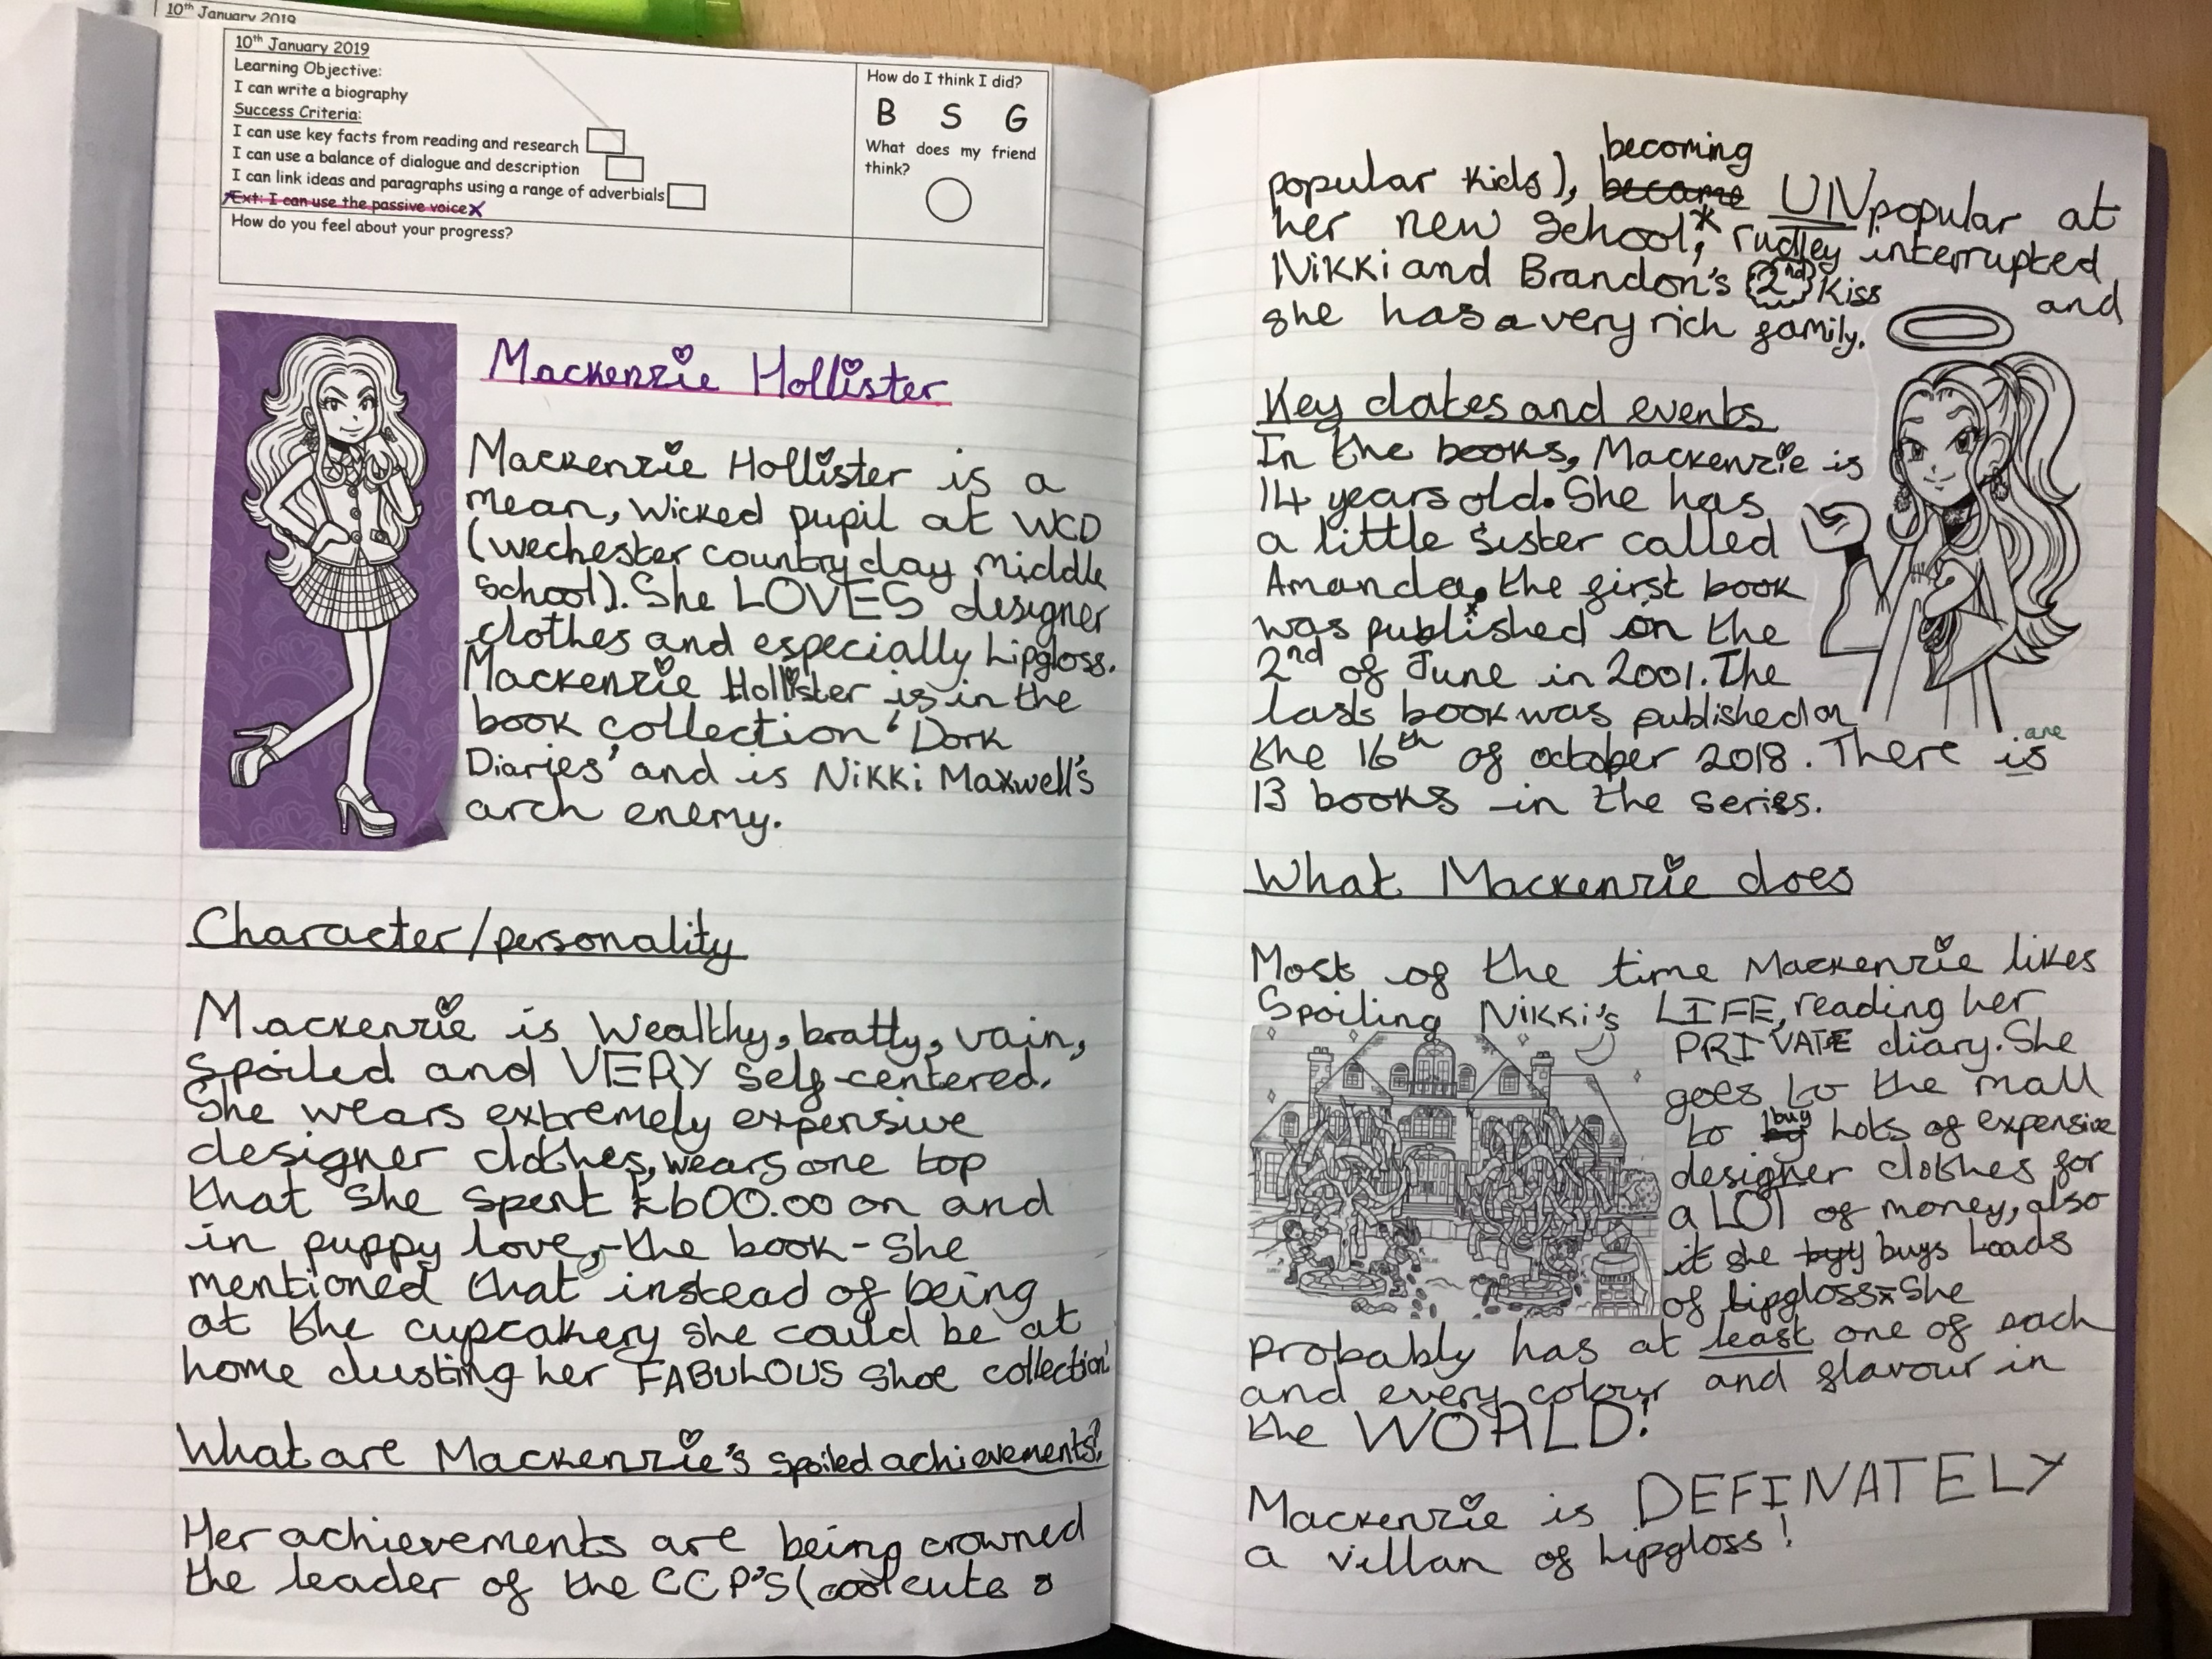 10th January 2019
10th January 2019
Learning Objective:
I can write a biography
Success Criteria:
I can use key facts from reading and research
I can use a balance of dialogue and description
I can link ideas and paragraphs using a range of adverbials
Ext: I can use the passive voice
How do you feel about your progress?
How do I think I did?
B S G
What does my friend
think?
Mackenzie Hollister
Mackenzie Hollister is a
mean, wicked pupil at WCD
(wechester country day middle
school). She LOVES designer
clothes and especially Lipgloss.
Mackenzie Hollister is in the
book collection 'Dork
Diaries' and is Nikki Maxwell's
arch enemy.
Character/personality
Mackenzie is Wealthy, bratty, vain,
spoiled and VERY self-centered.
She wears extremely expensive
designer clothes, wears one top
that she spent £600.00 on and
in puppy love, -the book- she
mentioned that instead of being
at the cupcakery she could be at
home dusting her FABULOUS shoe collection'
What are Mackenzie's spoiled achievements?
Her achievements are being crowned
the leader of the CCP'S (cool cute &
becoming
popular kids), became UNpopular at
her new school,* rudley interrupted
Nikki and Brandon's 2nd kiss
and
she has a very rich family.
Key dates and events
In the books, Mackenzie is
14 years old. She has
a little sister called
Amanda. the first book
was published on the
2nd of June in 2001. The
last book was published on
the 16th of october 2018. There is
are
13 books in the series.
What Mackenzie does
Most of the time Mackenzie likes
Spoiling Nikki's LIFE, reading her
PRIVATE diary. She
goes to the mall
buy
to by Lots of expensive
designer clothes for
a LOT of money, also
it she byy buys Loads
of lipgloss. She
probably has at least one of each
and every colour and flavour in
the WORLD!
Mackenzie is DEFINATELY
a villan of lipgloss!